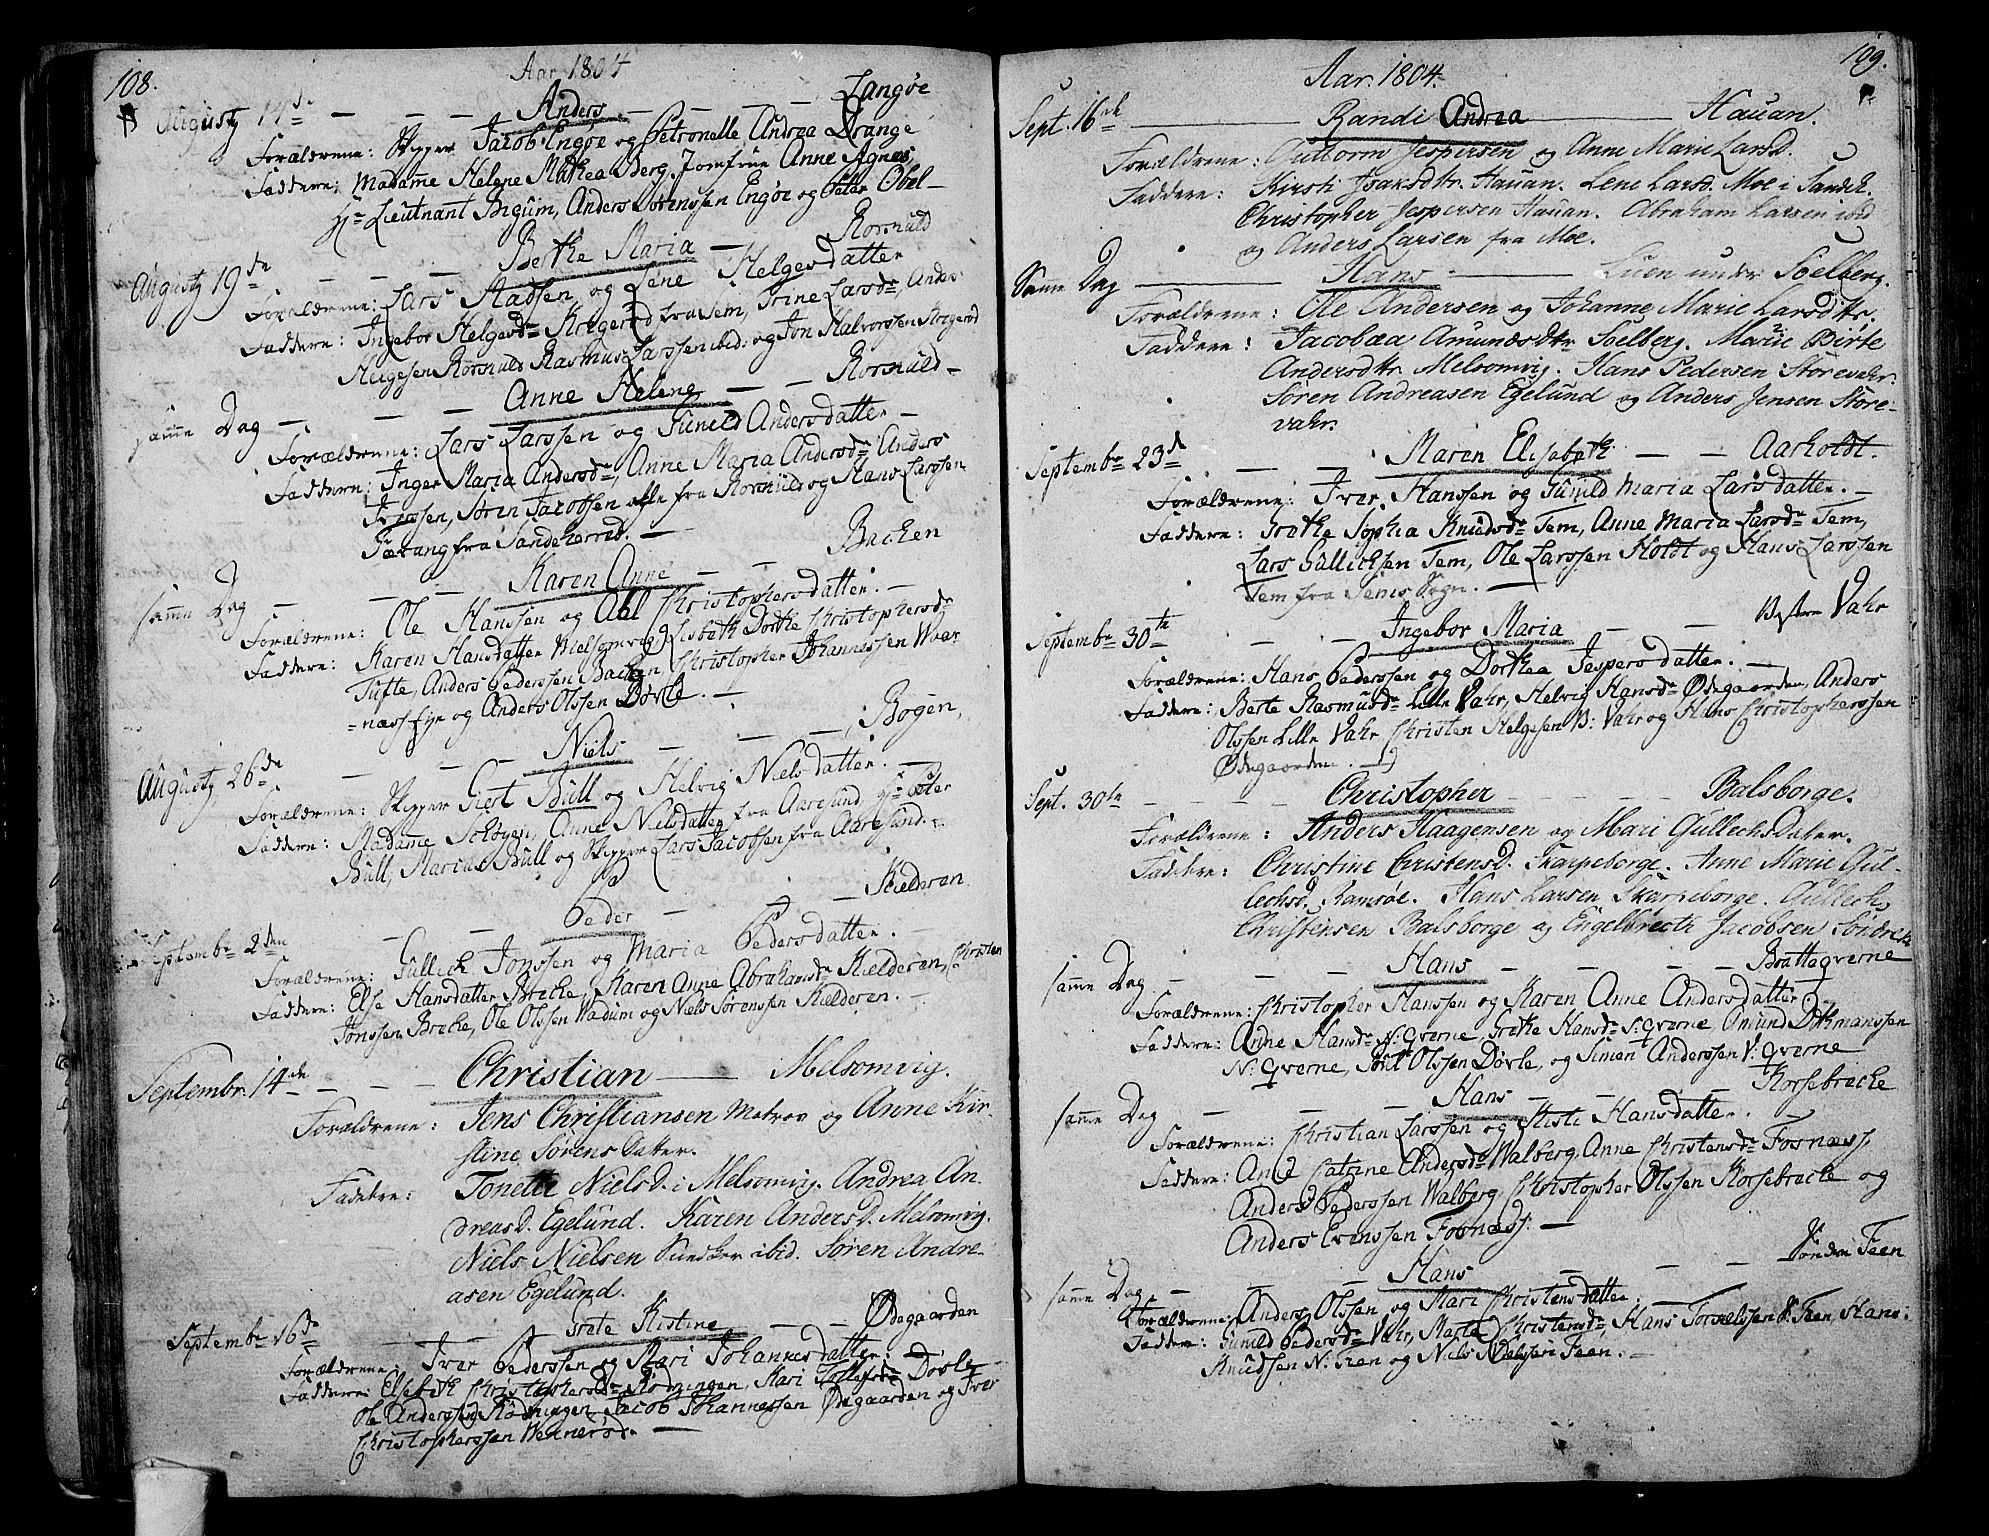 108.
Aar 1804
Augusty 14de — — — Anders — — — Langøe
Forældrene: Skipper Jacob Engøe og Petronelle Andrea Drange
Faddere: Madame Helene Mathea Berg, Jomfrue Anne Agnes,
Hr Lieutnant Bigum, Anders Sørenssen Engøe og Peter Obel-
Augusty 19de — — — Berthe Maria — Rørsuld
Forældrene: Lars Madsen og Lene Helgesdatter
Faddere: Ingebor Helgesdr Krogerød fra Sem, Trine Larsdr, Anders
Helgesen Rorsuld Rasmus Larssen ibid: og Jon Halvorssen Krogerød
samme Dag — — — Anne Helene — — Rorsuld —
Forældrene: Lars Larssen og Gunild Andersdatter —
Faddere: Inger Maria Andersdr, Anne Maria Andersdr Anders
Iverssen, Sørin Jacobsen alle fra Rorsuld og Hans Larssen
Tærang fra Sandeherred. —
samme Dag — — — Karen Anne — — Backen
Forældrene: Ole Hanssen og Abel Christophersdatter. —
Faddere: Karen Hansdatter Mielsomvig, Lisbeth Dorthe Christophersdr
Tufte, Anders Pederssen Backen, Christopher Johannessen Waar
-næss og Anders Olssen Dovle. —
Augusty 26de — — — Niels — — — Bogen,
Forældrene: Skipper Giert Bull og Helvig Nielsdatter. —
Faddere: Madame Schøyen, Anne Nielsdatter fra Aaresund, Hr Peter
Bull, Marius Bull og Skipper Lars Jacobsen fra Aaresund. —
Septembr 2den — Peder — — Kielderen
Forældrene: Gullich Jonssen og Maria Pedersdatter. —
Faddere: Else Hansdatter Brecke, Karen Anne Abrahamsdr Kielderen, Christen
Jonssen Brecke, Ole Olssen Wadum og Niels Sørenssen Kielderen. —
Septembr. 14de — — — Christian — Melsomvig.
Forældrene: Jens Christiansen Matros og Anne Kir-
stine Sørens Datter.
Faddere: Tonette Niels D. i Melsomvig. Andrea An-
dreas D. Egelund. Karen Anders D. Melsomvig.
Niels Nielsen Snedker ibid. Søren Andre-
asen Egelund.
Septembr 16de — — Grete Kistine — — Ødegaarden
Forældrene: Iver Pederssen og Mari Johannesdatter. —
Faddere: Elsebeth Christophersdr Rødningen, Mari Tollefsdr Dovle
Ole Anderssen Rødningen Jacob Johannessen Ødegaarden og Iver
Christopherssen Wennerød. —
109.
Aar. 1804.
Sept. 16de — Randi Andrea — Hauan.
Forældrene: Guttorm Jespersen og Anne Marie Larsd.
Faddere: Kirsti Isaksdtr. Hauan. Lene Larsd. Moe i Sandeh.
Christopher Jespersen Hauan. Abraham Larsen ibid
og Anders Larsen fra Moe.
Samme Dag — Hans — Luen under Soelberg.
Forældrene: Ole Andersen og Johanne Marie Larsdttr.
Faddere: Jacobæa Amundsdtr Soelberg. Marie Birte
Andersdtr. Melsomvig. Hans Pedersen Storevahr.
Søren Andreasen Egelund og Anders Jensen Store-
vahr.
Septembr 23d — — Maren Elisabeth — — Aarholdt.
Forældrene: Iver Hanssen og Gunild Maria Larsdatter. —
Faddere: Grethe Sophia Knudsdr Tem, Anne Maria Larsdr Tem,
Lars Gullichsen Tem, Ole Larssen Holdt og Hans Larssen
Tem fra Sems Sogn. —
Septembr 30te — — Ingebor Maria — — Østere Vahr
Forældrene: Hans Pederssen og Dorthea Jespersdatter. —
Faddere: Berte Rasmusdr Lille Vahr, Helvig Hansdr Ødegaarden, Anders
Olssen Lille Vahr Christen Helgesen Ø: Vahr og Hans Christopherssen
Ødegaarden. —
Sept. 30te — — — Christopher — — — Balsborge.
Forældrene: Anders Haagensen og Mari Gullechs Datter.
Faddere: Christine Christensd. Skarpeborge. Anne Marie Gul-
lechsd. Ramsøe. Hans Larsen Skarpeborge. Gullech
Christensen Balsborge og Engelbrecth Jacobsen
samme Dag — — — Hans — — — Bratteqverne
Forældrene: Christopher Hanssen og Karen Anne Andersdatter
Faddere: Anne Hansdr N: Qverne, Grethe Hansdr S: Qverne, Amund Ditmanssen
N: Qverne, Joel Olssen Dovle, og Simen Anderssen V: Qverne
samme Dag — — — Hans — — Korsebrecke
Forældrene: Christian Larssen og Kisti Hansdatter.
Faddere: Anne Catrine Andersdr Walberg, Anne Christensdr Fossnæss,
Anders Pederssen Walberg, Christopher Olssen Korsebrecke og
Anders Evenssen Fossnæss. —
samme Dag — — — Hans — — — Søndre Feen
Forældrene: Anders Olssen og Mari Christensdatter.
Faddere: Gunild Pedersdr Vahr, Marte Christensdr, Hans S: Feen, Hans
Knudssen N: Feen og Niels Feen. —